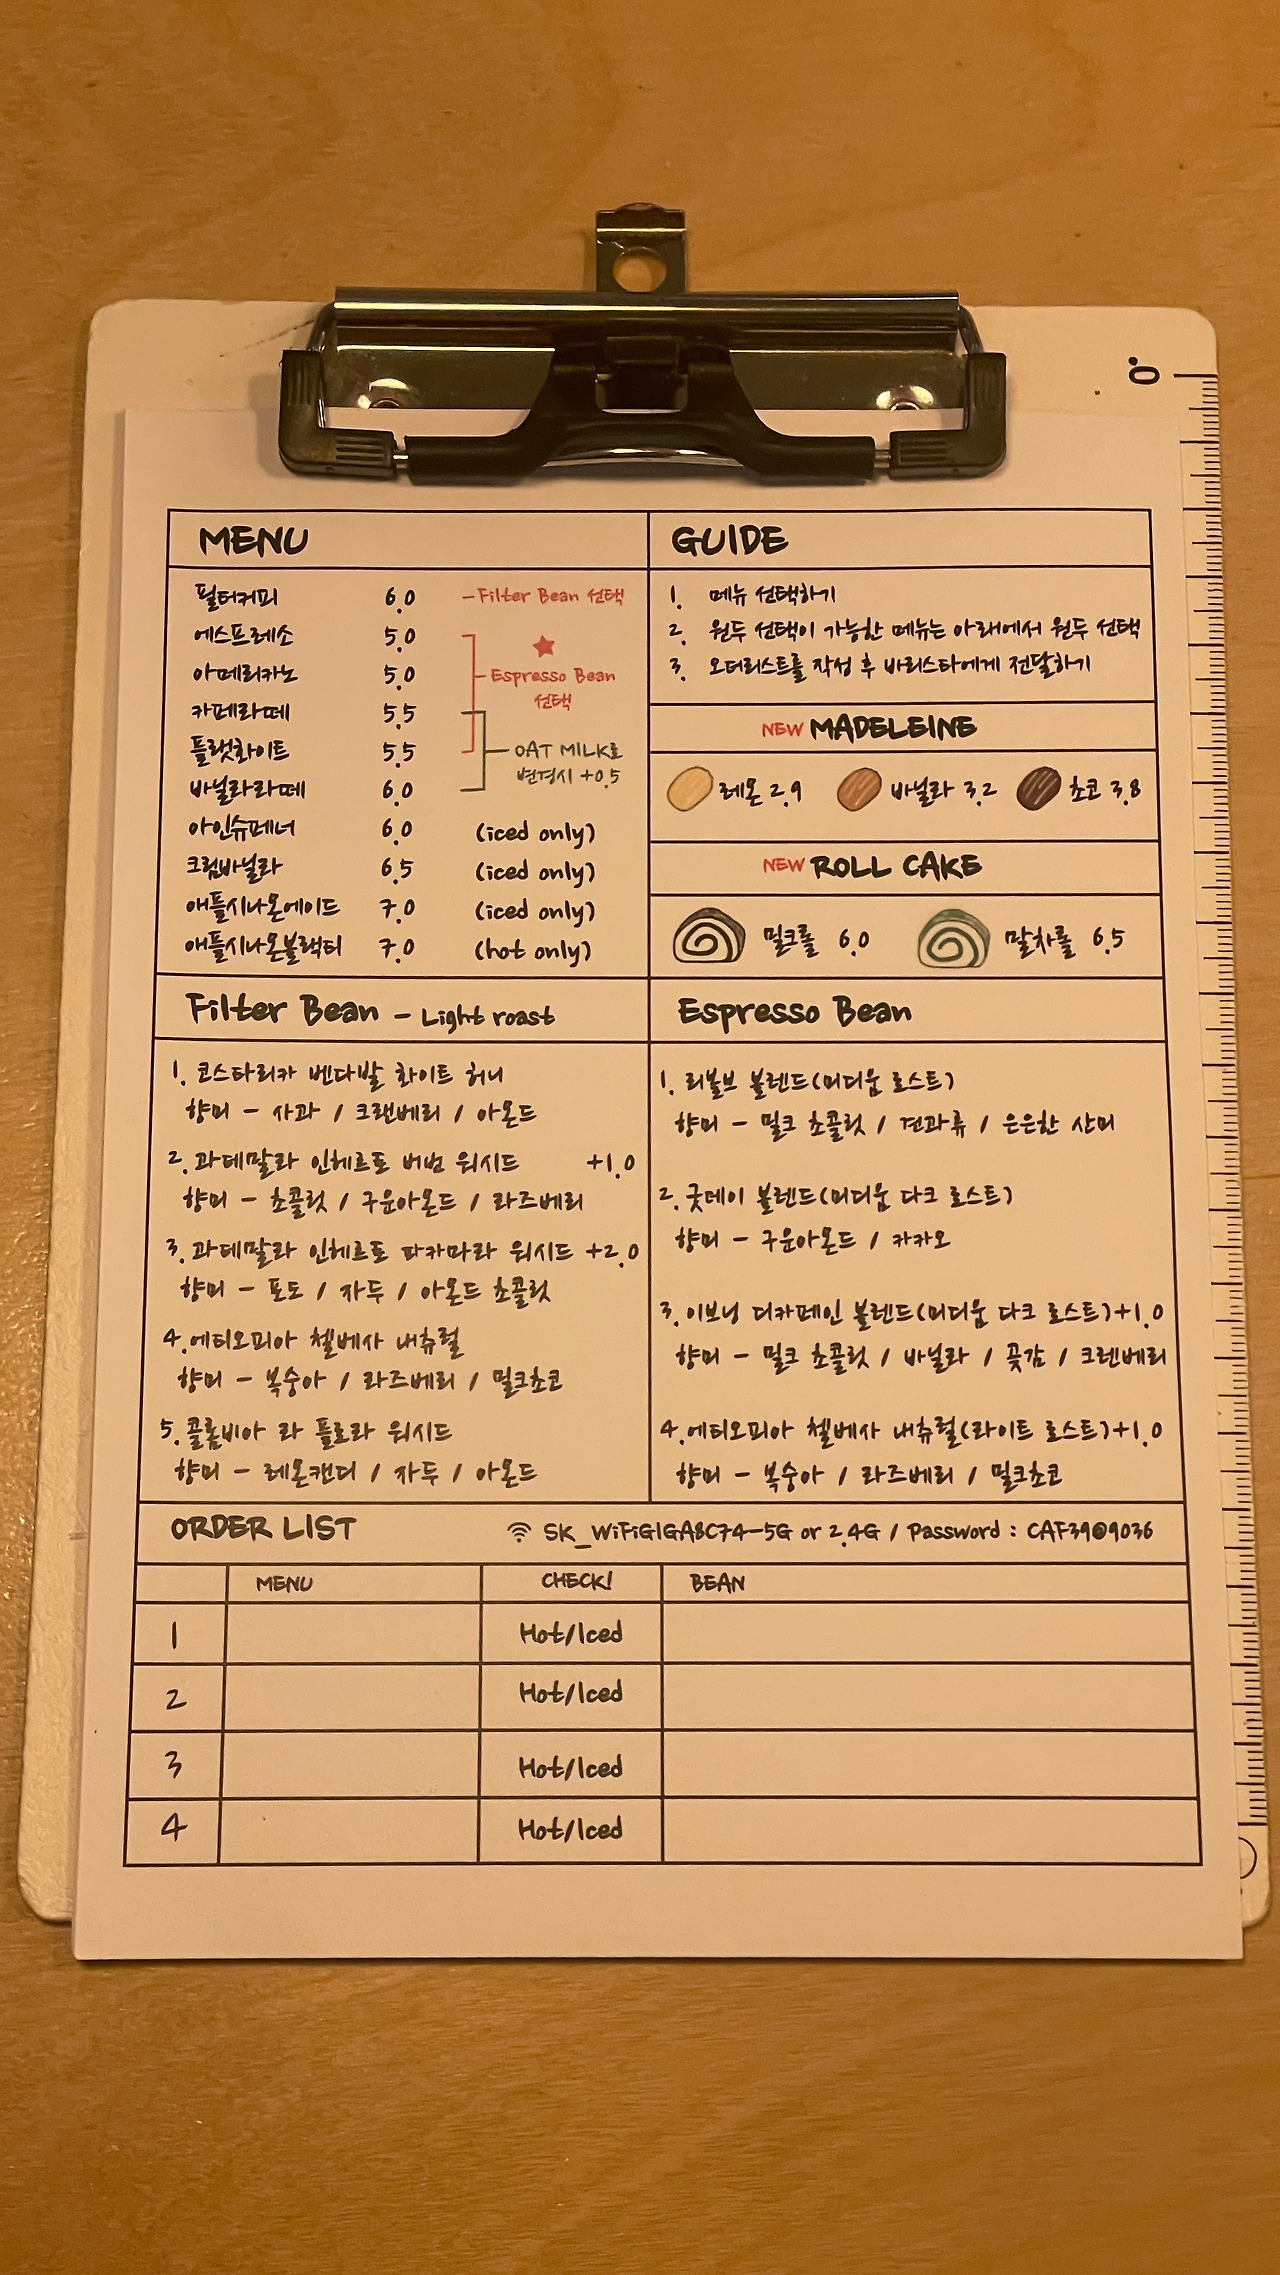 MENU
필터커피 6.0 -Filter Bean 선택
에스프레소 5.0
아메리카노 5.0 Espresso Bean
선택
카페라떼 5.5
플랫화이트 5.5 OAT MILK로
변경시 +0.5
바닐라라떼 6.0
아인슈페너 6.0 (iced only)
크림바닐라 6.5 (iced only)
애플시나몬에이드 7.0 (iced only)
애플시나몬블랙티 7.0 (hot only)
GUIDE
1. 메뉴 선택하기
2. 원두 선택이 가능한 메뉴는 아래에서 원두 선택
3. 오더리스트를 작성 후 바리스타에게 전달하기
NEW MADELEINE
레몬 2.9 바닐라 3.2 초코 3.8
NEW ROLL CAKE
밀크롤 6.0 말차롤 6.5
Filter Bean - Light roast
1. 코스타리카 벤다발 화이트 허니
향미 - 사과 / 크랜베리 / 아몬드
2. 과테말라 인헤르토 버번 워시드 +1.0
향미 - 초콜릿 / 구운아몬드 / 라즈베리
3. 과테말라 인헤르토 파카마라 워시드 +2.0
향미 - 포도 / 자두 / 아몬드 초콜릿
4. 에티오피아 첼베사 내츄럴
향미 - 복숭아 / 라즈베리 / 밀크초코
5. 콜롬비아 라 플로라 워시드
향미 - 레몬캔디 / 자두 / 아몬드
Espresso Bean
1. 리볼브 블렌드(미디움 로스트)
향미 - 밀크 초콜릿 / 견과류 / 은은한 산미
2. 굿데이 블렌드(미디움 다크 로스트)
향미 - 구운아몬드 / 카카오
3. 이브닝 디카페인 블렌드(미디움 다크 로스트)+1.0
향미 - 밀크 초콜릿 / 바닐라 / 곶감 / 크렌베리
4. 에티오피아 첼베사 내츄럴(라이트 로스트)+1.0
향미 - 복숭아 / 라즈베리 / 밀크초코
ORDER LIST SK_WiFiGIGA8C74-5G or 2.4G / Password : CAF39@9036
MENU CHECK! BEAN
1 Hot/Iced
2 Hot/Iced
3 Hot/Iced
4 Hot/Iced
0